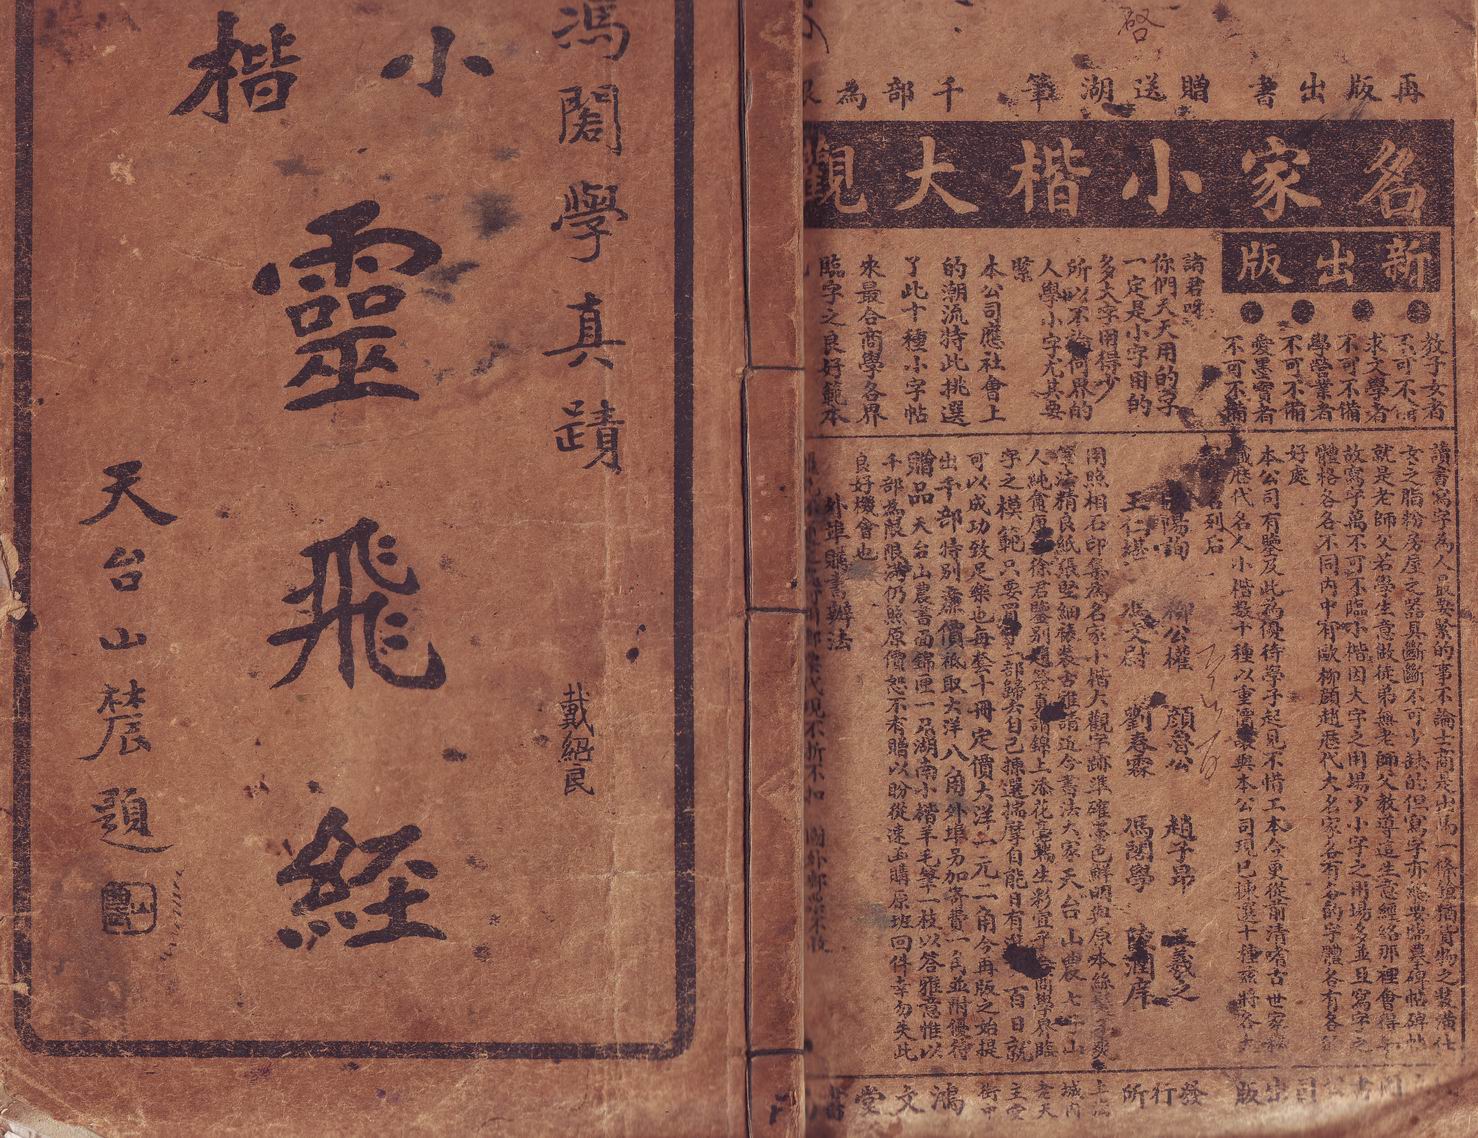 馮閣學真蹟
小楷
靈飛經
天台山農題
戴紹良
再版出書 贈送湖筆 千部為限
名家小楷大觀
新出版
教子女者
不可不備
求文學者
不可不備
學營業者
不可不備
愛墨寶者
不可不備
諸君呀
你們天天用的字
一定是小字用的
多大字用得少
所以不論何界的
人學小字尤其要
緊
本公司應社會上
的潮流特此挑選
了此十種小字帖
來最合商學各界
臨字之良好範本
讀書寫字為人最要緊的事不論士商是出馬一條鎗猶貨物之裝潢仕
女之脂粉房屋之器具斷斷不可少缺的但寫字亦總要臨摹碑帖碑帖
就是老師父若學生意啟徒弟無老師父教導這生意經絡那裡會得
故寫字萬不可不臨小楷因大字之用場少小字之用場多並且寫字之
體格各各不同內中有歐柳顏趙歷代大名家各有各的字體各有各
好處
本公司有鑒及此為優待學子起見不惜工本今更從前清嗜古世家
藏歷代名人小楷數十種以重價 與本公司現已揀選十種茲將各
名列后
歐陽詢 柳公權 顏魯公 趙子昂 王羲之
王仁堪 馮文蔚 劉春霖 馮閣學 陸潤庠
用照相石印集為名家小楷大觀字跡準確墨色鮮明與原本絲髮
算法精良紙張堅細裝裝古雅請近今書法大家天台山農七子山
人純 徐君鑒別題簽真謂錦上添花毫端生彩宜乎 商學界臨
字之模範只要買 一部歸去自己揀選揣摩自能日有 百日就
可以成功致足樂也每套十冊定價大洋二元二角今再版之始提
出千部特別廉價祇取大洋八角外埠另加寄費一角並附優待
贈品天台山農書面錦匣一只湖南小楷羊毛筆一枝以答雅意惟以
千部為限限滿仍照原價恕不有贈以盼從速函購原班回件幸勿失此
良好機會也
外埠購書辦法
發行所
鴻文堂